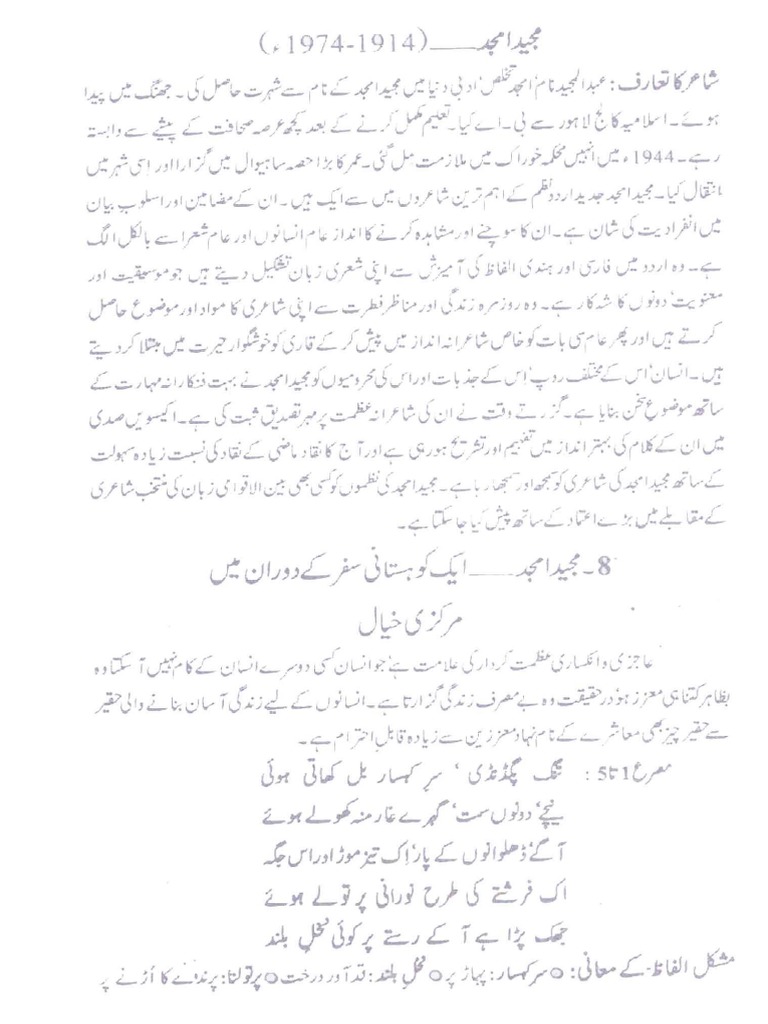 مجید امجد ــــــ (1914-1974ء)
شاعر کا تعارف: عبدالمجید نام' امجد تخلص' ادبی دنیا میں مجید امجد کے نام سے شہرت حاصل کی۔ جھنگ میں پیدا
ہوئے۔ اسلامیہ کالج لاہور سے بی۔اے کیا۔ تعلیم مکمل کرنے کے بعد کچھ عرصہ صحافت کے پیشے سے وابستہ
رہے۔ 1944ء میں انہیں محکمہ خوراک میں ملازمت مل گئی۔ عمر کا بڑا حصہ ساہیوال میں گزارا اور اِسی شہر میں
انتقال کیا۔ مجید امجد جدید اردو نظم کے اہم ترین شاعروں میں سے ایک ہیں۔ ان کے مضامین اور اسلوبِ بیان
میں انفرادیت کی شان ہے۔ ان کا سوچنے اور مشاہدہ کرنے کا انداز عام انسانوں اور عام شعرا سے بالکل الگ
ہے۔ وہ اردو میں فارسی اور ہندی الفاظ کی آمیزش سے اپنی شعری زبان تشکیل دیتے ہیں جو موسیقیت اور
معنویت' دونوں کا شہکار ہے۔ وہ روزمرہ زندگی اور مناظرِ فطرت سے اپنی شاعری کا مواد اور موضوع حاصل
کرتے ہیں اور پھر عام سی بات کو خاص شاعرانہ انداز میں پیش کر کے قاری کو خوشگوار حیرت میں مبتلا کر دیتے
ہیں۔ انسان' اس کے مختلف روپ' اِس کے جذبات اور اس کی محرومیوں کو مجید امجد نے بہت فنکارانہ مہارت کے
ساتھ موضوعِ سخن بنایا ہے۔ گزرتے وقت نے ان کی شاعرانہ عظمت پر مہرِ تصدیق ثبت کی ہے۔ اکیسویں صدی
میں ان کے کلام کی بہتر انداز میں تفہیم اور تشریح ہو رہی ہے اور آج کا نقاد ماضی کے نقاد کی نسبت زیادہ سہولت
کے ساتھ مجید امجد کی شاعری کو سمجھ اور سمجھا رہا ہے۔ مجید امجد کی نظموں کو کسی بھی بین الاقوامی زبان کی منتخب شاعری
کے مقابلے میں بڑے اعتماد کے ساتھ پیش کیا جا سکتا ہے۔
8۔ مجید امجد ــــــ ایک کوہستانی سفر کے دوران میں
مرکزی خیال
عاجزی و انکساری عظمتِ کردار کی علامت ہے' جو انسان کسی دوسرے انسان کے کام نہیں آ سکتا وہ
بظاہر کتنا ہی معزز ہو' درحقیقت وہ بے مصرف زندگی گزارتا ہے۔ انسانوں کے لیے زندگی آسان بنانے والی حقیر
سے حقیر چیز بھی معاشرے کے نام نہاد معززین سے زیادہ قابلِ احترام ہے۔
مصرع 1 تا 5: تنگ پگڈنڈی ' سرِ کہسار بل کھاتی ہوئی
نیچے' دونوں سمت' گہرے غار منہ کھولے ہوئے
آگے' ڈھلوانوں کے پار' اِک تیز موڑ اور اس جگہ
اک فرشتے کی طرح نورانی پر تولے ہوئے
جھک پڑا ہے آ کے رستے پر کوئی نخلِ بلند
مشکل الفاظ کے معانی: ○ سرِ کہسار: پہاڑ پر ○ نخلِ بلند: قد آور درخت ○ پر تولنا: پرندے کا اُڑنے پر